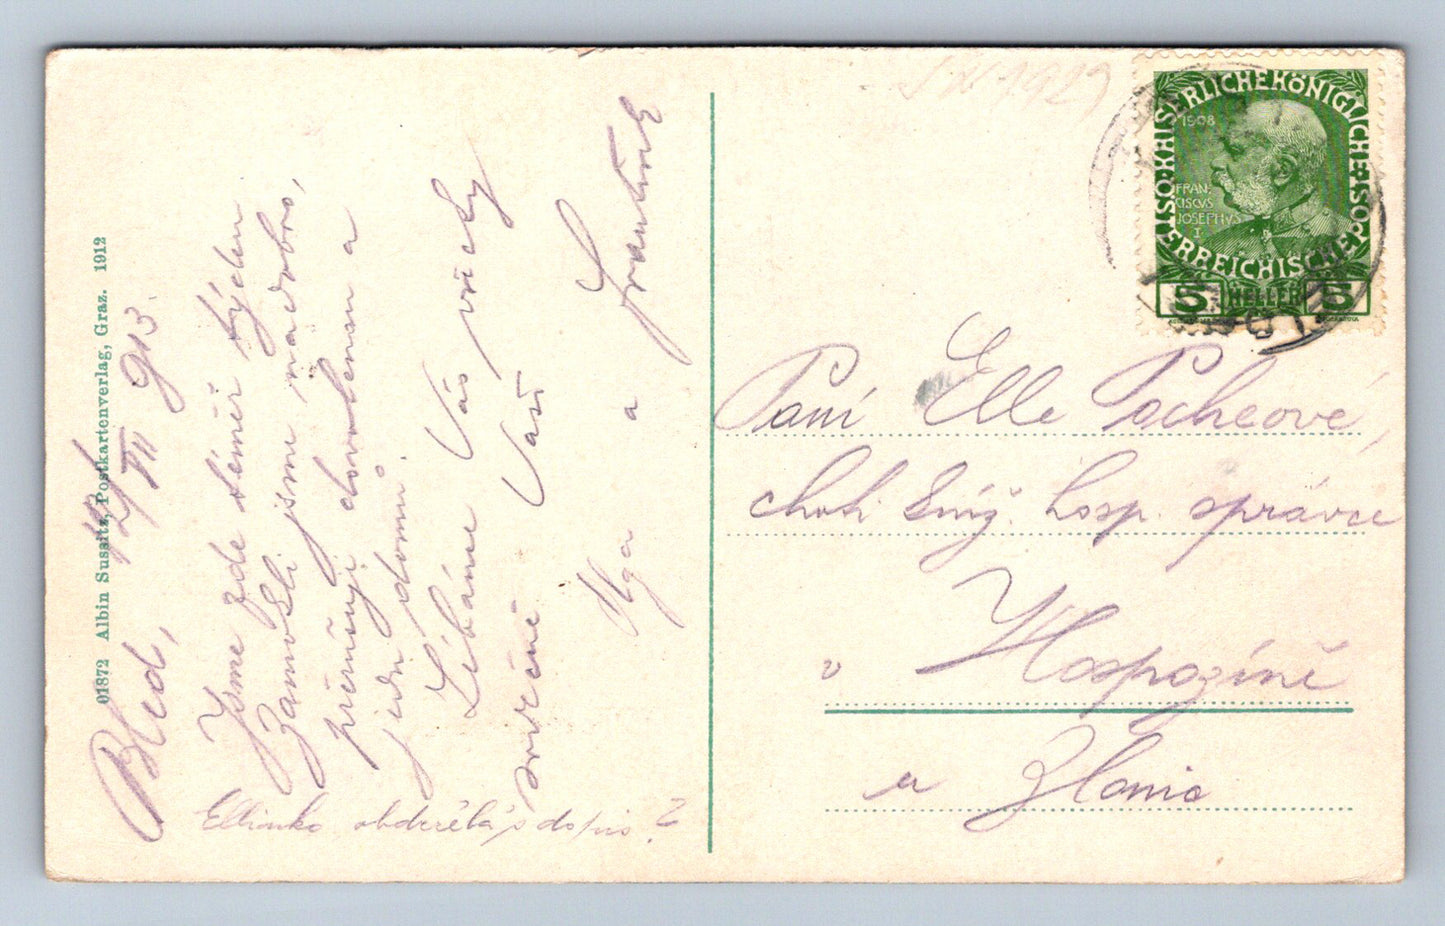 01872 Albin Sussitz, Postkartenverlag, Graz. 1912
Bled, 12/VII 913.
Jsme zde téměř týden
jsme na dobro,
přesunuji dovolenou a
jedu domů.
Líbáme Vás vřele
srdečně Vaši
Olga a Frantisek
Ellinko obdržela's dopis?
1929
KAISERLICHE KÖNIGLICHE ÖSTERREICHISCHE POST
1908
FRAN-
CISCVS
JOSEPHVS
I
5 HELLER 5
Paní Elle Pocheové,
choti kníž. hosp. správce
v Hospozíně
u Zlonic